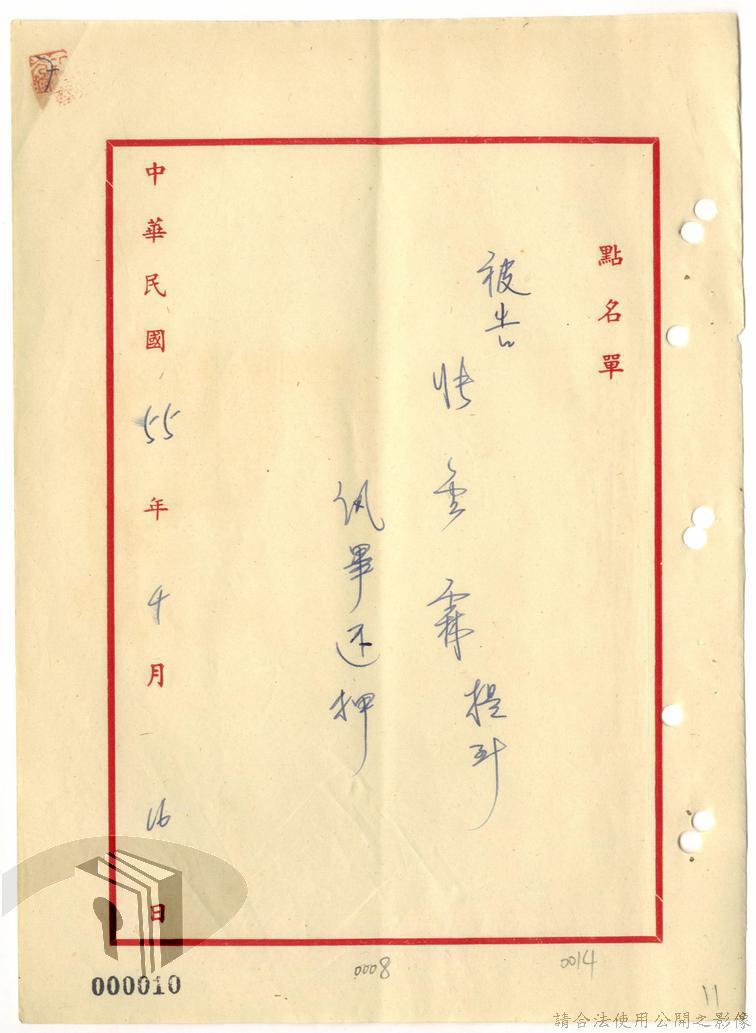 點名單
被告
張雲霖 提到
訊畢还押
中華民國55年十月16日
000010
0008
0014
11
請合法使用公開之影像